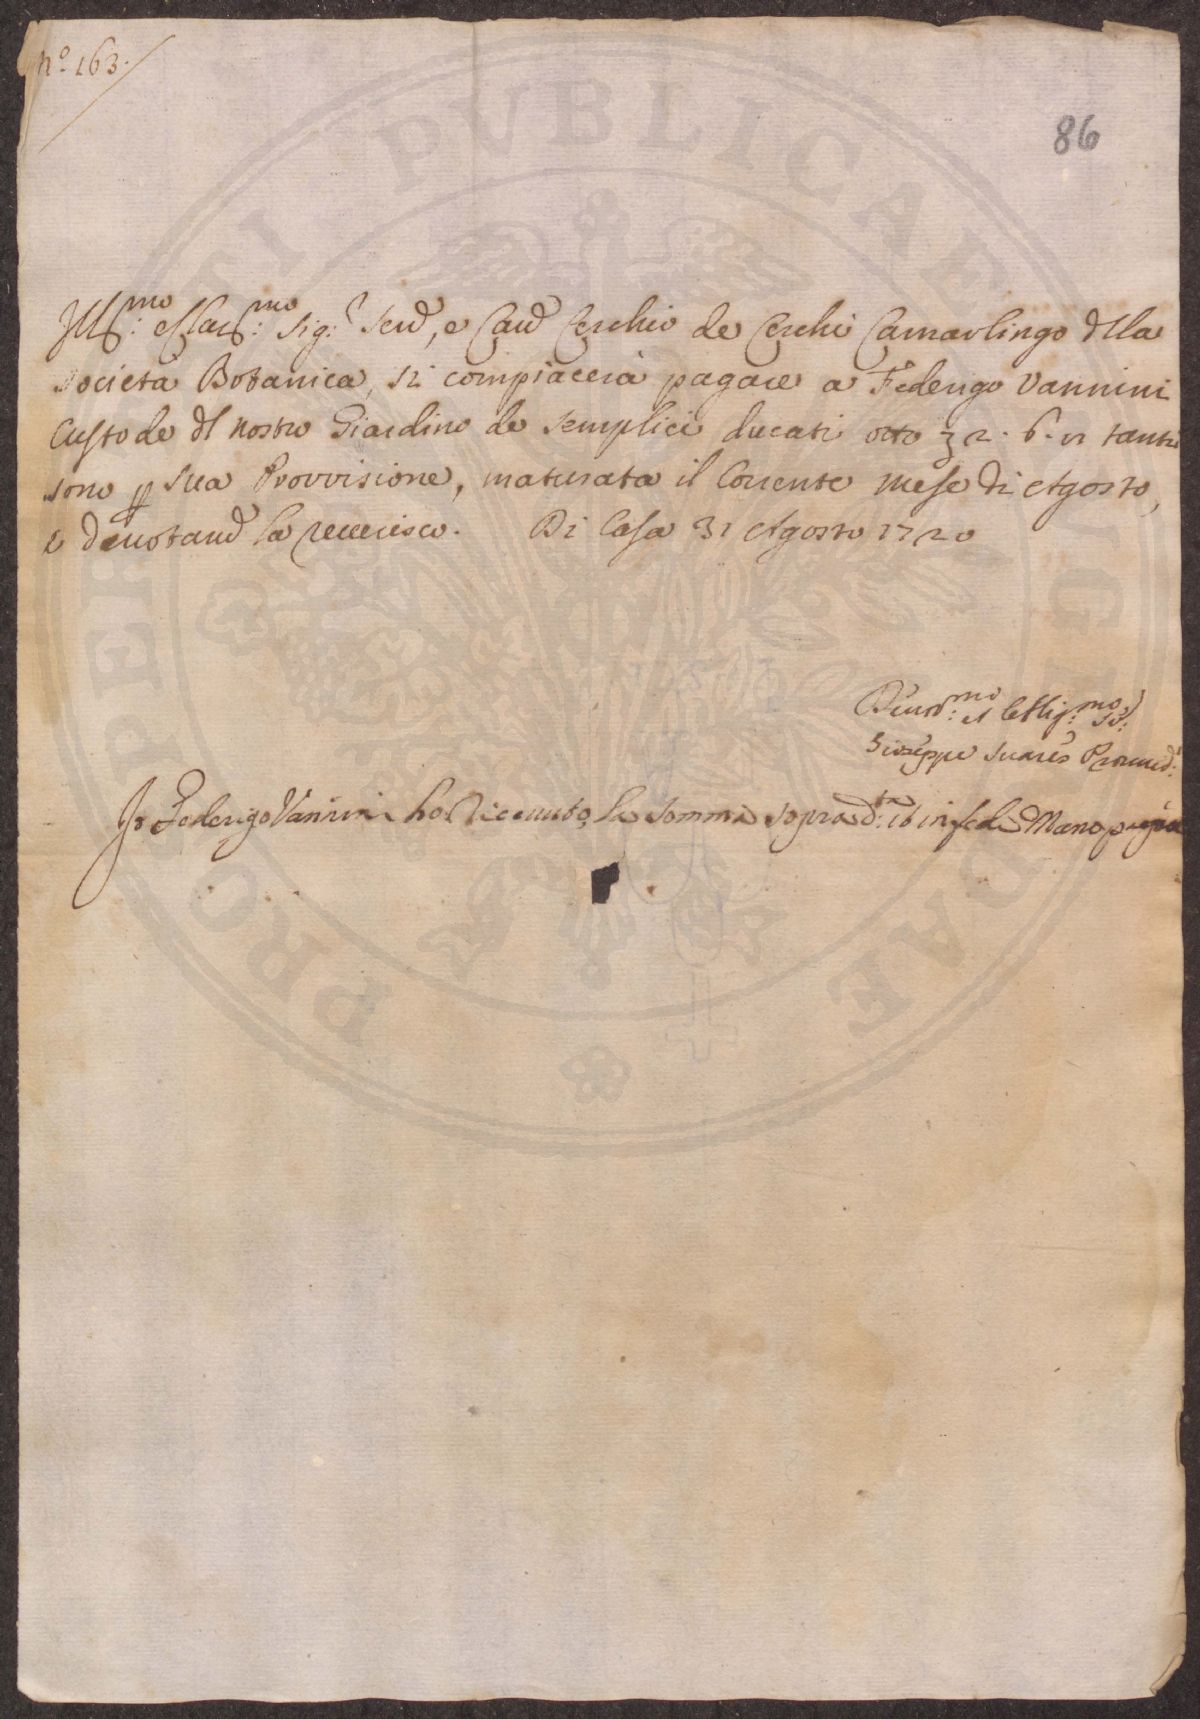 N.º 163.
86
Ill.mo e Clar.mo Sig.r Send, e Cavd Cerchio de Cerchi Camarlingo dlla
Società Botanica, si compiacerà pagare a Federigo Vannini
Custode dl nostro Giardino de semplici ducati otto 2. 6. tanti
sono p sua Provvisione, maturata il Corrente mese di Agosto,
e devotamd la reverisco. Di Casa 31 Agosto 1720
Devot.mo et Obblig.mo
Giuseppe Suares Provved:
Io Federigo Vannini ho Riceuuto la somma soprad:ta io in fede Mano propria
PROPERTI PUBLICAE DAE